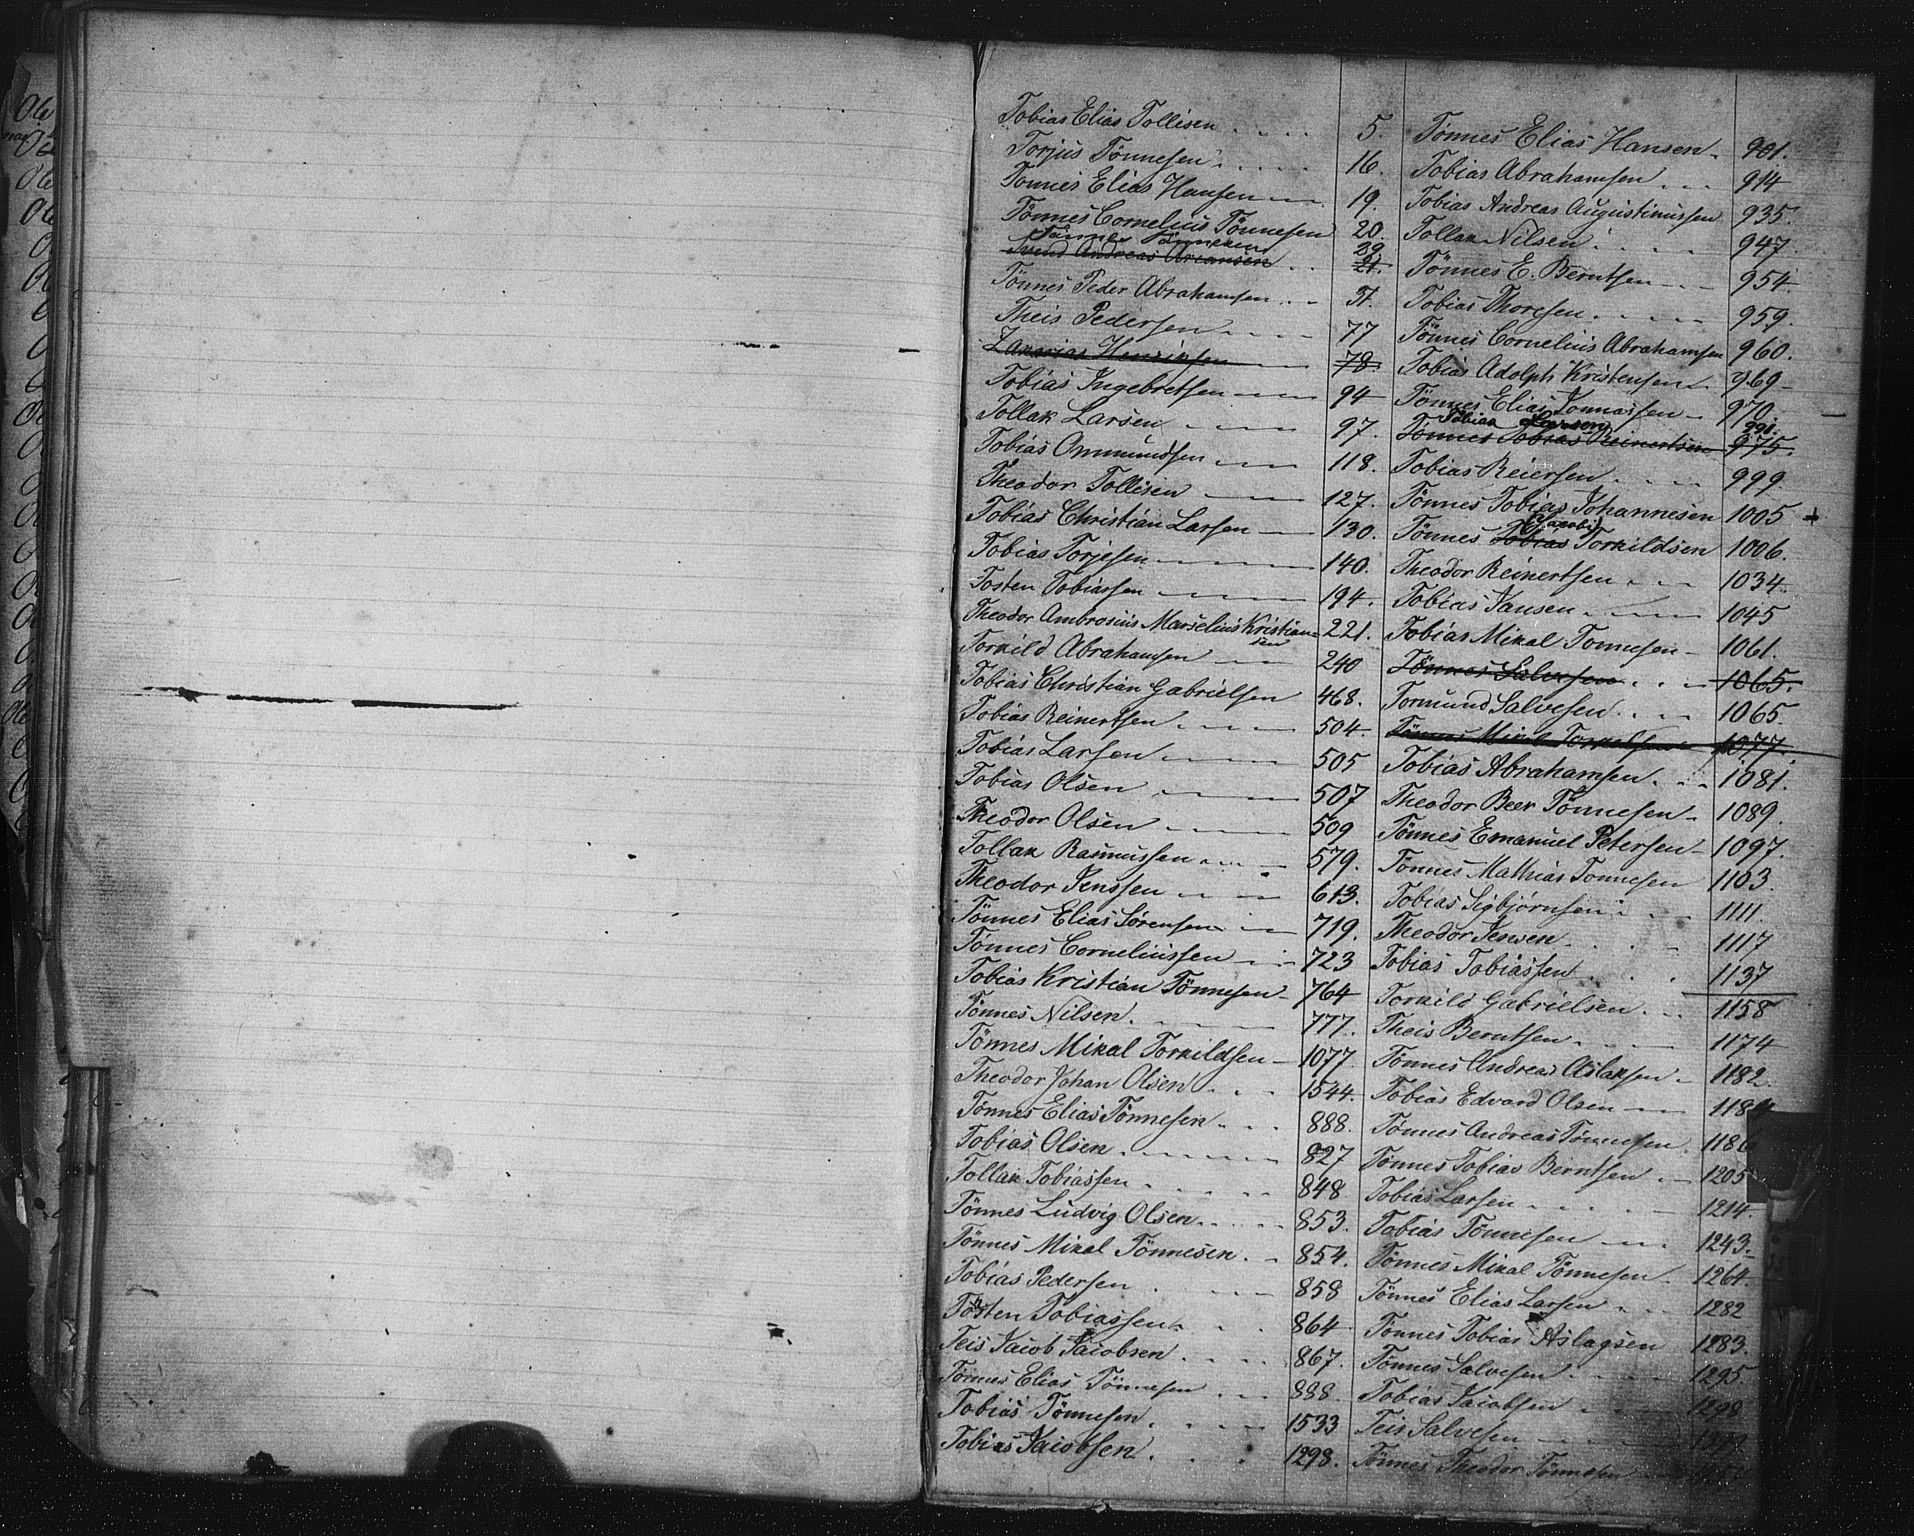 Tobias Elias Tollisen 5.
Torjus Tönnesen 16.
Tönnes Elias Hansen 19.
Tönnes Cornelius Tönnesen 20.
Tönnes Tönnesen 29
Svend Andreas Arcansen 21.
Tönnes Peder Abrahamsen 31.
Theis Pedersen 77
Zakarias Henriksen 78.
Tobias Ingebretsen 94
Tollak Larsen 97.
Tobias Ommundsen 118.
Theodor Tollisen 127.
Tobias Christian Larsen 130.
Tobias Torjesen 140.
Tosten Tobiassen 194.
Theodor Ambrosius Marselius Kristian= 221.
sen
Torkild Abrahamsen 240
Tobias Christian Gabrielsen 468.
Tobias Reinertsen 504.
Tobias Larsen 505
Tobias Olsen 507
Theodor Olsen 509
Tollak Rasmussen 579.
Theodor Jenssen 613.
Tönnes Elias Sörensen 719.
Tönnes Corneliussen 723
Tobias Kristian Tönnesen 764
Tönnes Nilsen 777.
Tönnes Mikal Torkildsen 1077.
Theodor Johan Olsen 1544.
Tönnes Elias Tönnesen 888.
Tobias Olsen 827
Tollak Tobiassen 848.
Tönnes Ludvig Olsen 853.
Tönnes Mikal Tönnesen 854.
Tobias Pedersen 858
Tosten Tobiassen 864
Teis Jacob Jacobsen 867.
Tönnes Elias Tönnesen 888.
Tobias Tönnesen 1533
Tobias Jacobsen 1298.
Tönnes Elias Hansen 901.
Tobias Abrahamsen 914
Tobias Andreas Augustinussen 935.
Tollak Nilsen 947
Tönnes E. Berntsen 954.
Tobias Thoresen 959.
Tönnes Cornelius Abrahamsen 960.
Tobias Adolph Kristensen 969
Tönnes Elias Jonnassen 970.
Tobias Larsen 991.
Tönnes Tobias Reinertsen 975.
Tobias Reiersen 999.
Tönnes Tobias Johannesen 1005 +
(Jacob)
Tönnes Tobias Torkildsen 1006.
Theodor Reinertsen 1034.
Tobias Jansen 1045
Tobias Mikal Tönnesen 1061.
Tönnes Salvesen 1065.
Tormund Salvesen 1065.
Tönnes Mikal Torkelsen 1077.
Tobias Abrahamsen 1081.
Theodor Beer Tönnesen 1089.
Tönnes Emanuel Petersen 1097.
Tönnes Mathias Tönnesen 1103.
Tobias Sigbjörnsen 1111.
Theodor Jensen 1117
Tobias Tobiassen 1137
Torkild Gabrielsen 1158
Theis Berntsen 1174
Tönnes Andreas Aslaksen 1182.
Tobias Edvard Olsen
Tönnes Andreas Tönnesen 1186
Tönnes Tobias Berntsen 1205
Tobias Larsen 1214.
Tobias Tönnesen 1243.
Tönnes Mikal Tönnesen 1264.
Tönnes Elias Larsen 1282
Tönnes Tobias Aslagsen 1283.
Tönnes Salvesen 1295.
Tobias Jacobsen 1298
Teis Salvesen
Tönnes Theodor Tönnesen